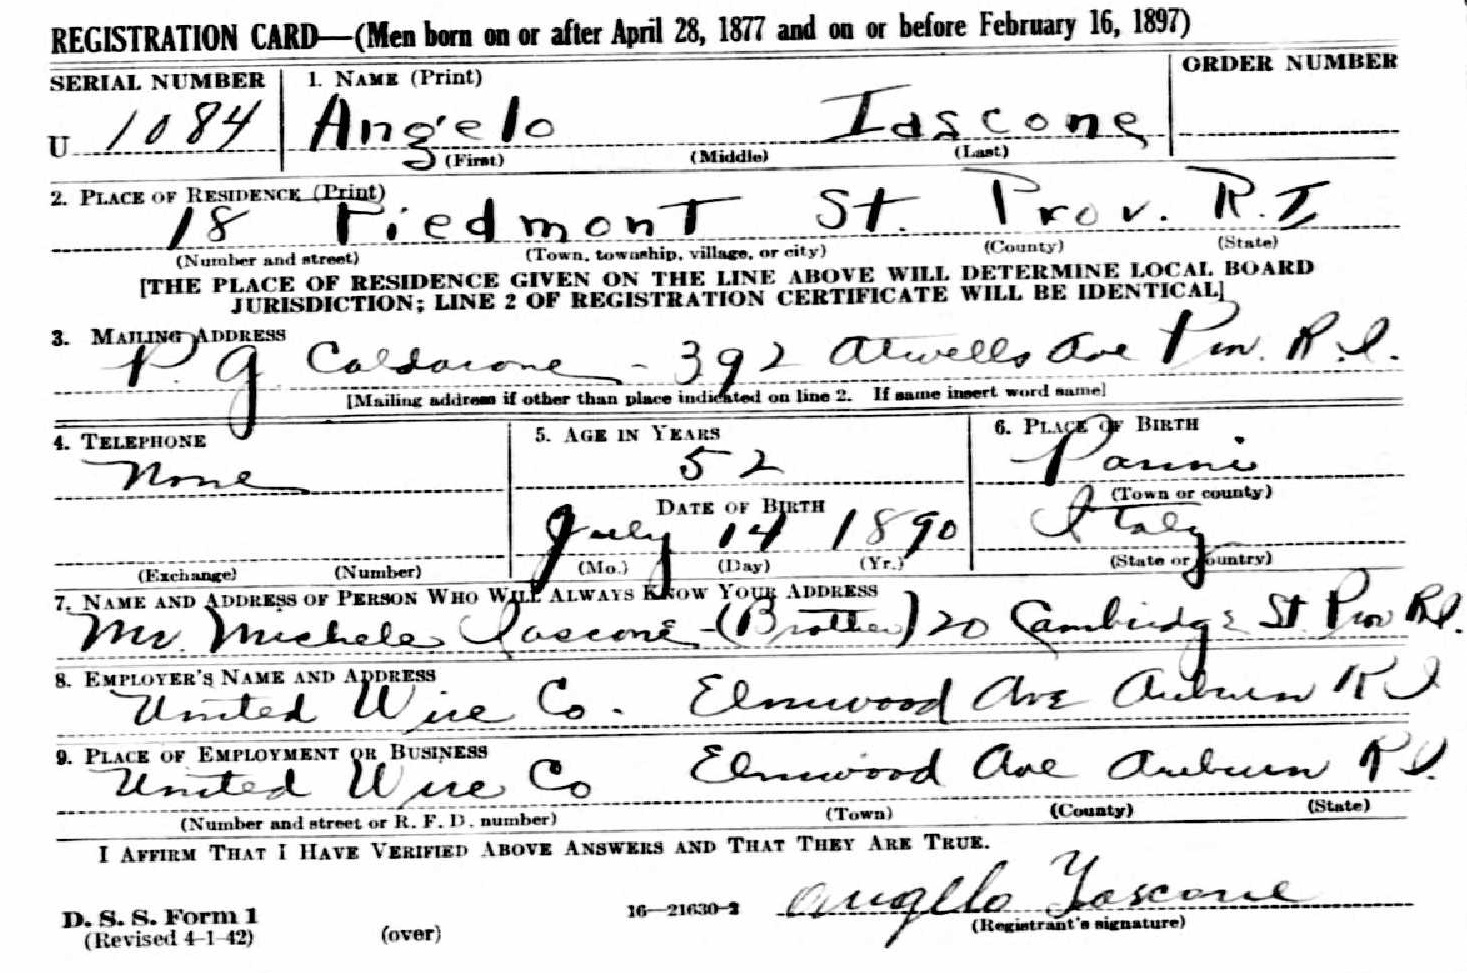 REGISTRATION CARD—(Men born on or after April 28, 1877 and on or before February 16, 1897)
SERIAL NUMBER 1. NAME (Print) ORDER NUMBER
U 1084 Angelo Iascone
(First) (Middle) (Last)
2. PLACE OF RESIDENCE (Print)
18 Piedmont St. Prov. R.I
(Number and street) (Town, township, village, or city) (County) (State)
[THE PLACE OF RESIDENCE GIVEN ON THE LINE ABOVE WILL DETERMINE LOCAL BOARD
JURISDICTION; LINE 2 OF REGISTRATION CERTIFICATE WILL BE IDENTICAL]
3. MAILING ADDRESS
P. G Caldarone - 392 Atwells Ave Prov. R.I.
[Mailing address if other than place indicated on line 2. If same insert word same]
4. TELEPHONE 5. AGE IN YEARS 6. PLACE OF BIRTH
None 52 Panni
(Town or county)
DATE OF BIRTH
July 14 1890 Italy
(Exchange) (Number) (Mo.) (Day) (Yr.) (State or country)
7. NAME AND ADDRESS OF PERSON WHO WILL ALWAYS KNOW YOUR ADDRESS
Mr. Michele Iascone - (Brother) 20 Cambridge St Prov R.I.
8. EMPLOYER'S NAME AND ADDRESS
United Wire Co. Elmwood Ave Auburn R I
9. PLACE OF EMPLOYMENT OR BUSINESS
United Wire Co Elmwood Ave Auburn R I.
(Number and street or R. F. D. number) (Town) (County) (State)
I AFFIRM THAT I HAVE VERIFIED ABOVE ANSWERS AND THAT THEY ARE TRUE.
Angelo Yascone
D. S. S. Form 1 16—21630-2 (Registrant's signature)
(Revised 4-1-42) (over)